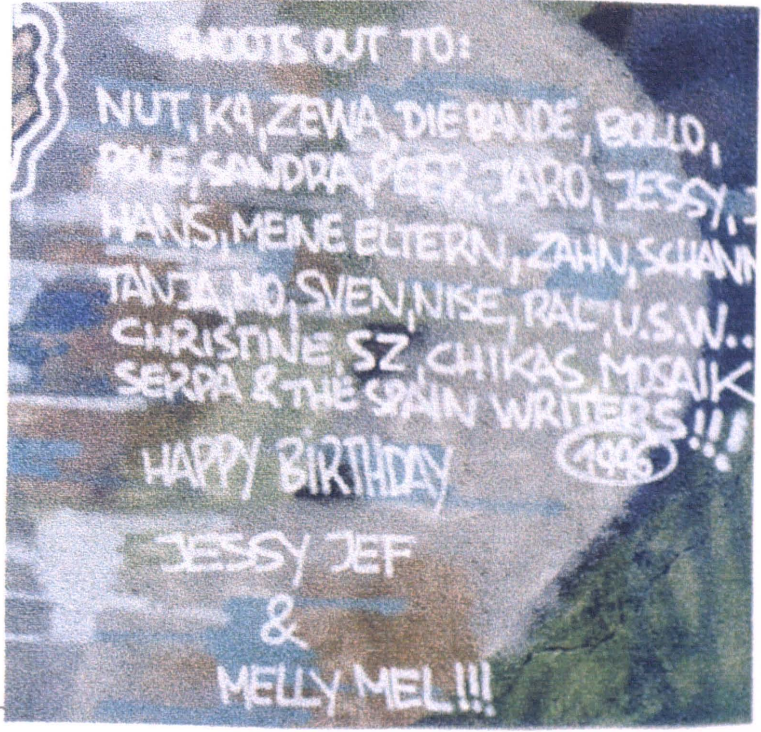 SHOOTS OUT TO:
NUT, K9, ZEWA, DIE BANDE, BOLLO,
POLE, SANDRA, PEER, JARO, JESSY, J
HANS, MEINE ELTERN, ZAHN, SCHANN
TANJA, MO, SVEN, NISE, RAL, U.S.W..
CHRISTINE, SZ, CHIKAS, MOSAIK
SERPA & THE SPAIN WRITERS!!!
1996
HAPPY BIRTHDAY
JESSY JEF
&
MELLY MEL!!!